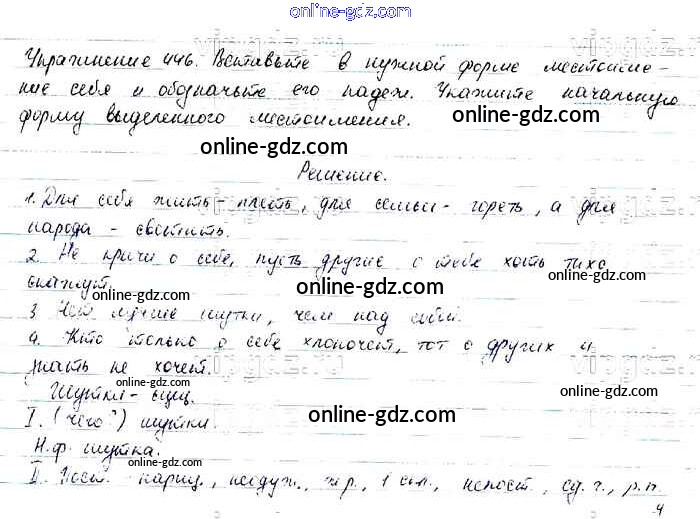 online-gdz.com
Упражнение 446. Вставьте в нужной форме местоиме-
ние себя и обозначьте его падеж. Укажите начальную
форму выделенного местоимения.
online-gdz.com
online-gdz.com
Решение.
1. Для себя жить - тлеть, для семьи - гореть, а для
народа - светить.
online-gdz.com
2. Не кричи о себе, пусть другие о тебе хоть тихо
скажут.
online-gdz.com
online-gdz.com
online-gdz.com
3. Нет лучше шутки, чем над собой.
4. Кто только о себе хлопочет, тот о других и
знать не хочет.
online-gdz.com
Шутки - сущ.
I. (чего?) шутки.
online-gdz.com
online-gdz.com
Н.ф. шутка.
online-gdz.com
online-gdz.com
II. Пост. - нариц., неодуш., ж.р., 1 скл., непост., ед. ч., р.п.
4